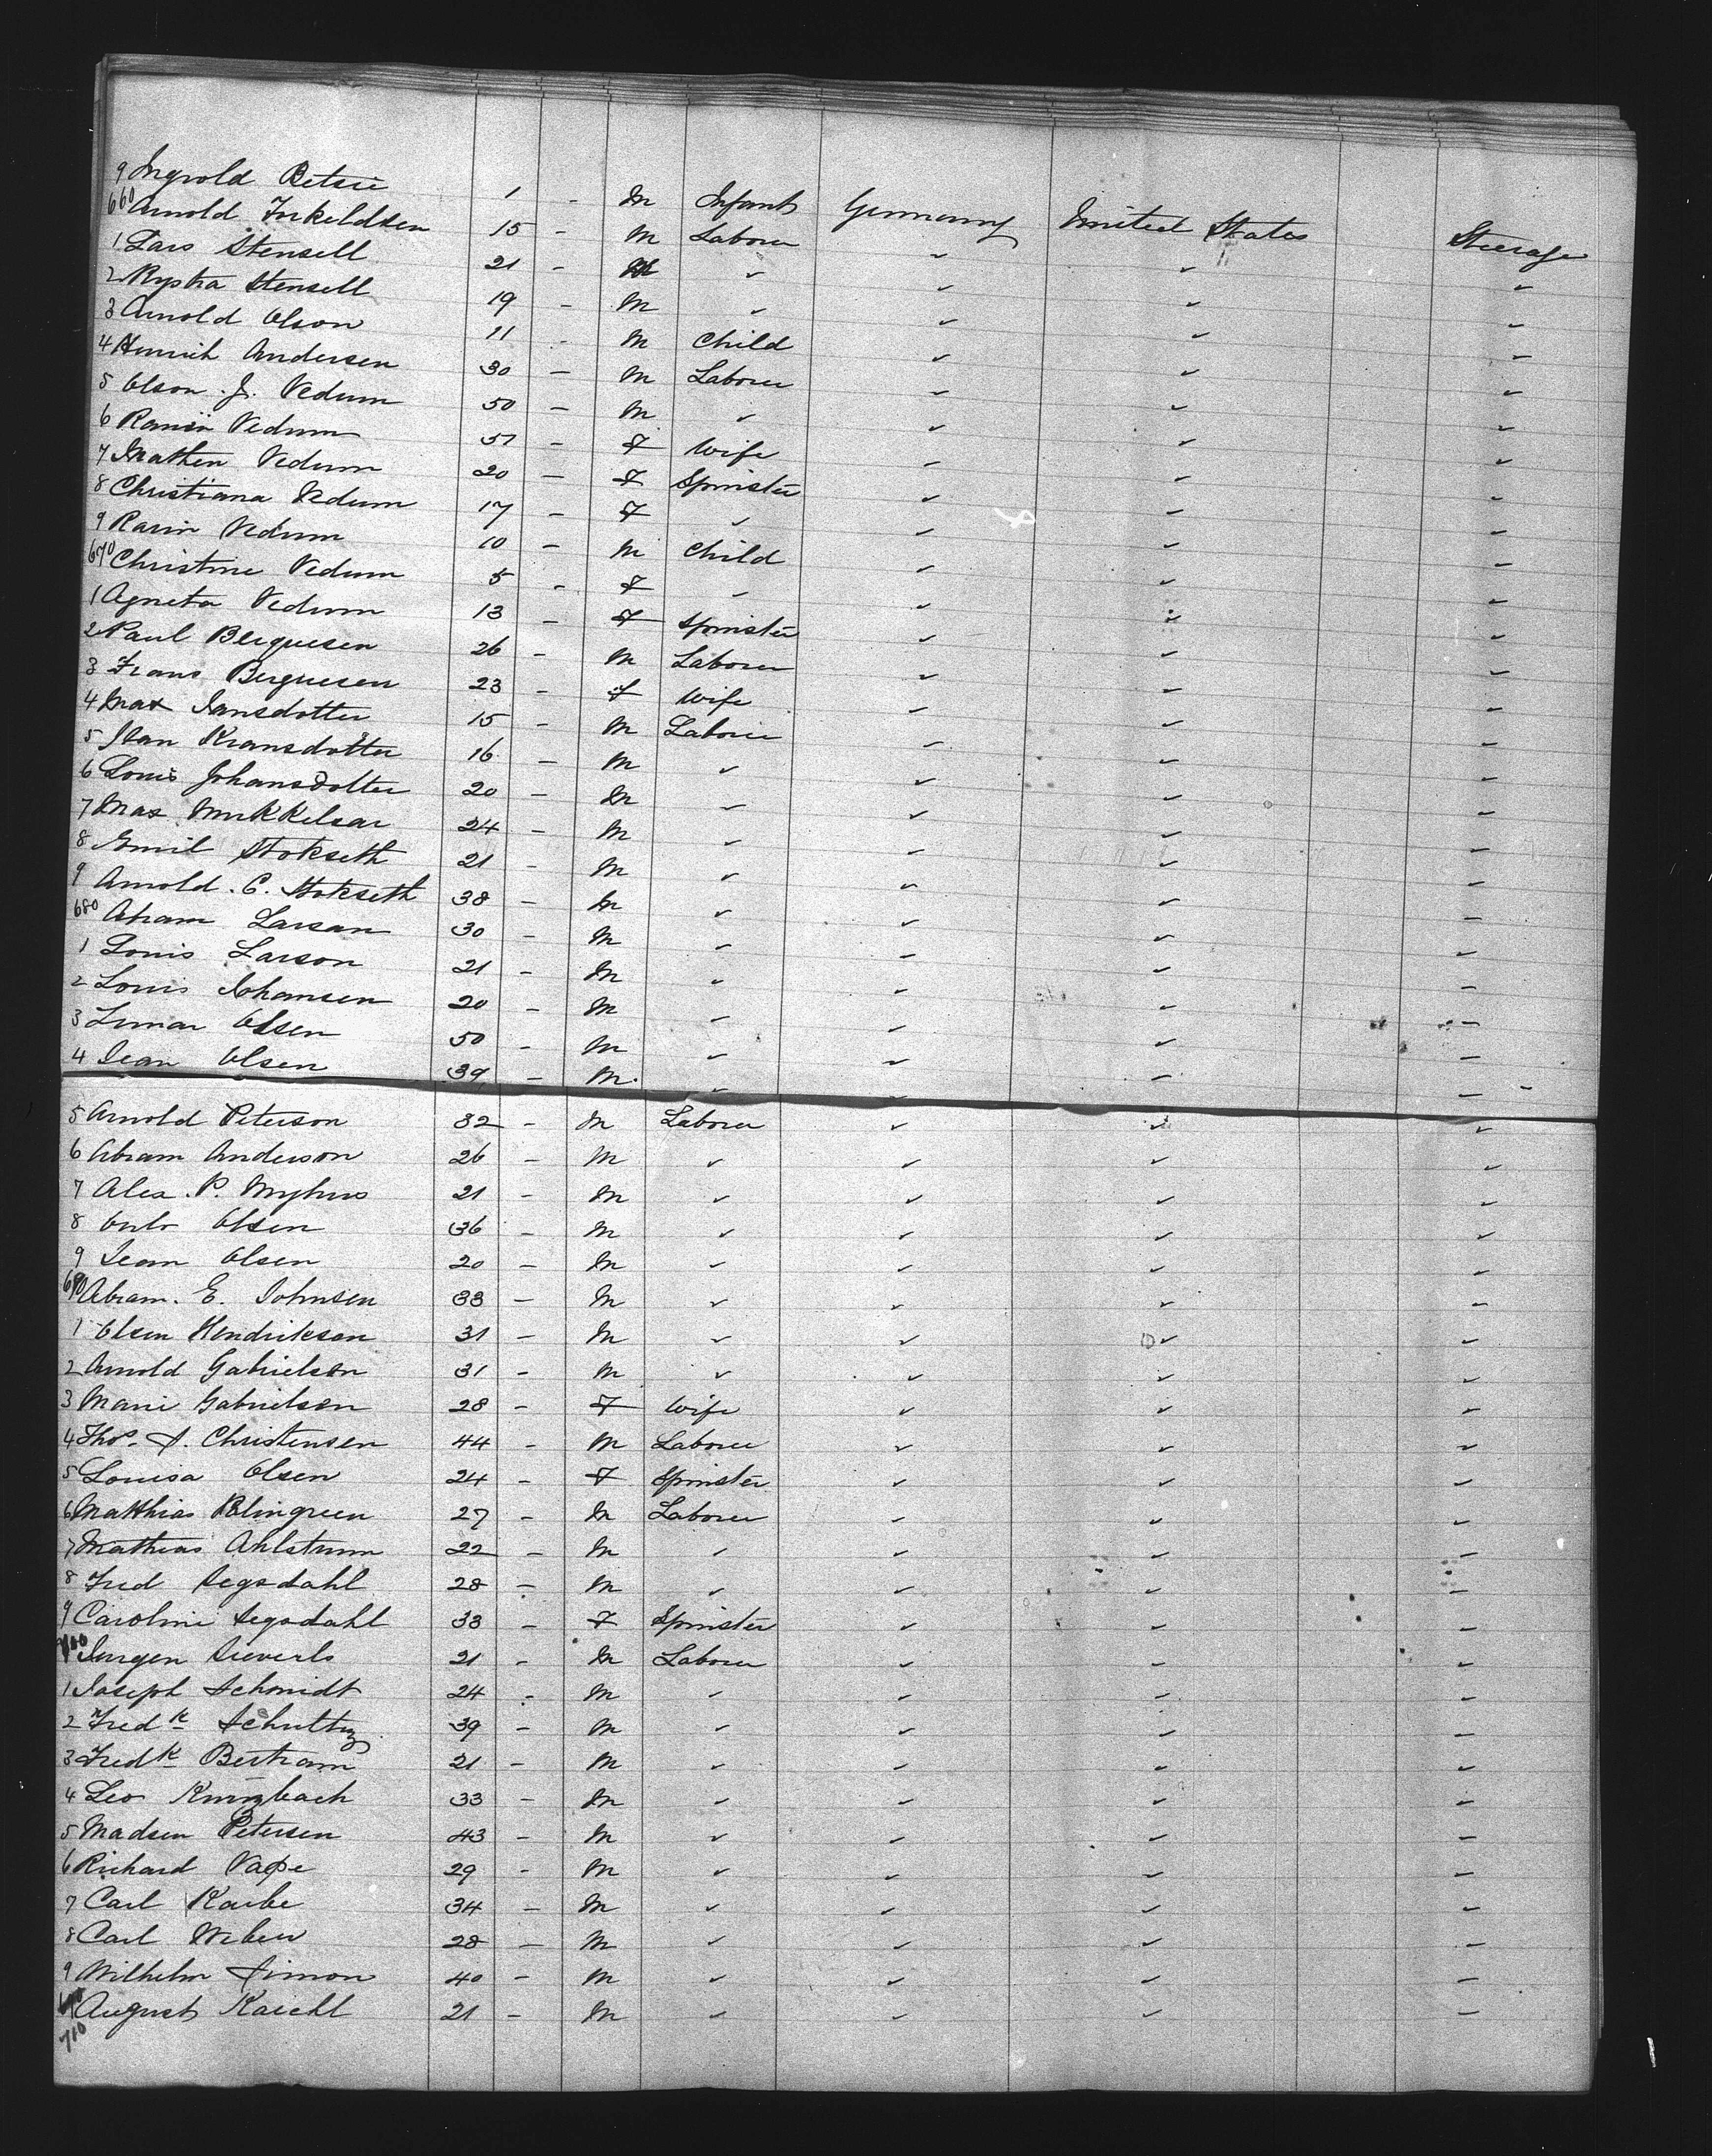 9 Ingvold Betsie 1 - M Infant Germany United States Steerage
660 Arnold Inkeldsen 15 - M Laborer ✓ ✓ ✓
1 Lars Stensell 21 - M ✓ ✓ ✓ ✓
2 Rystra Stensell 19 - M ✓ ✓ ✓ ✓
3 Arnold Olson 11 - M Child ✓ ✓ ✓
4 Henrich Andersen 30 - M Laborer ✓ ✓ ✓
5 Olson J. Vedum 50 - M ✓ ✓ ✓ ✓
6 Vedum 51 - F Wife ✓ ✓ ✓
7 Mathen Vedum 20 - F Spinster ✓ ✓ ✓
8 Christiana Vedum 17 - F ✓ ✓ ✓ ✓
9 Rarin Vedum 10 - M Child ✓ ✓ ✓
670 Christine Vedum 5 - F ✓ ✓ ✓ ✓
1 Agneta Vedum 13 - F Spinster ✓ ✓ ✓
2 Paul Berguesen 26 - M Laborer ✓ ✓ ✓
3 Frans Berguesen 23 - F Wife ✓ ✓ ✓
4 Max Jansdotter 15 - M Laborer ✓ ✓ ✓
5 Kransdotter 16 - M ✓ ✓ ✓ ✓
6 Louis Johansdotter 20 - M ✓ ✓ ✓ ✓
7 Max Mukkelsar 24 - M ✓ ✓ ✓ ✓
8 Emil Stokseth 21 - M ✓ ✓ ✓ ✓
9 Arnold C. Stokseth 38 - M ✓ ✓ ✓ -
680 Abram Larsan 30 - M ✓ ✓ ✓ ✓
1 Louis Larson 21 - M ✓ ✓ ✓ -
2 Louis Johansen 20 - M ✓ ✓ ✓ -
3 Olsen 50 - M ✓ ✓ ✓ -
4 Jean Olsen 39 - M ✓ ✓ ✓ -
5 Arnold Peterson 32 - M Laborer ✓ ✓ ✓
6 Abram Anderson 26 - M ✓ ✓ ✓ ✓
7 Alex. P. Myhus 21 - M ✓ ✓ ✓ ✓
8 Olsen 36 - M ✓ ✓ ✓ ✓
9 Jean Olsen 20 - M ✓ ✓ ✓ ✓
690 Abram. E. Johnsen 33 - M ✓ ✓ ✓ -
1 Olsen Hendrikson 31 - M ✓ ✓ ✓ ✓
2 Arnold Gabrielson 31 - M ✓ ✓ ✓ ✓
3 Marie Gabrielson 28 - F Wife ✓ ✓ ✓
4 Thos. J. Christensen 44 - M Laborer ✓ ✓ ✓
5 Louisa Olsen 24 - F Spinster ✓ ✓ ✓
6 Matthias Blingreen 27 - M Laborer ✓ ✓ ✓
7 Mathias Ahlstrum 22 - M ✓ ✓ ✓ -
8 Fred Segsdahl 28 - M ✓ ✓ ✓ -
9 Caroline Segsdahl 33 - F Spinster ✓ ✓ -
700 Jurgen Sieverls 21 - M Laborer ✓ ✓ ✓
1 Joseph Schmidt 24 - M ✓ ✓ ✓ -
2 Fredk Schultz 39 - M ✓ ✓ ✓ -
3 Fredk Bertram 21 - M ✓ ✓ ✓ ✓
4 Leo Kunzbach 33 - M ✓ ✓ ✓ -
5 Madsen Petersen 43 - M ✓ ✓ ✓ -
6 Richard Pape 29 - M ✓ ✓ ✓ -
7 Carl Karbe 34 - M ✓ ✓ ✓ -
8 Carl Weber 28 - M ✓ ✓ ✓ -
9 Wilhelm Simon 40 - M ✓ ✓ ✓ -
August Kaichl 21 - M ✓ ✓ ✓ -
710